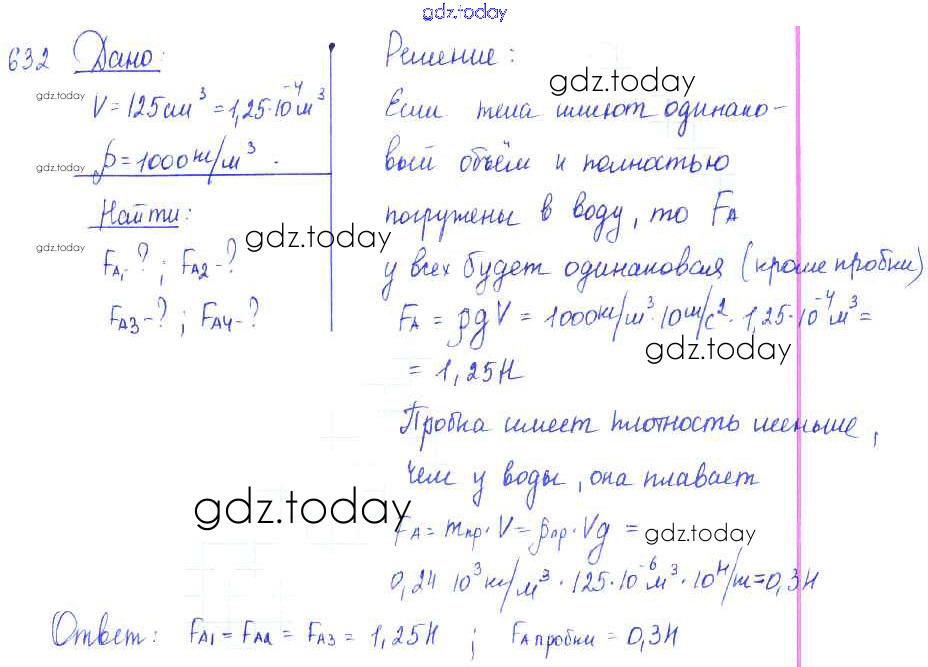 gdz.today
632 Дано:
gdz.today
V = 125 см³ = 1,25·10⁻⁴ м³
gdz.today
ρ = 1000 кг/м³.
Найти:
gdz.today
gdz.today
F_A1 - ? ; F_A2 - ?
F_A3 - ? ; F_A4 - ?
Решение:
gdz.today
Если тела имеют одинако-
вый объём и полностью
погружены в воду, то F_A
у всех будет одинаковая (кроме пробки)
F_A = ρgV = 1000 кг/м³ · 10 м/с² · 1,25·10⁻⁴ м³ =
gdz.today
= 1,25 Н
Пробка имеет плотность меньше,
чем у воды, она плавает
gdz.today
F_A = m_пр · V = ρ_пр · Vg =
gdz.today
0,24 10³ кг/м³ · 125·10⁻⁶ м³ · 10 Н/кг = 0,3 Н
Ответ: F_A1 = F_A2 = F_A3 = 1,25 Н ; F_A пробки = 0,3 Н